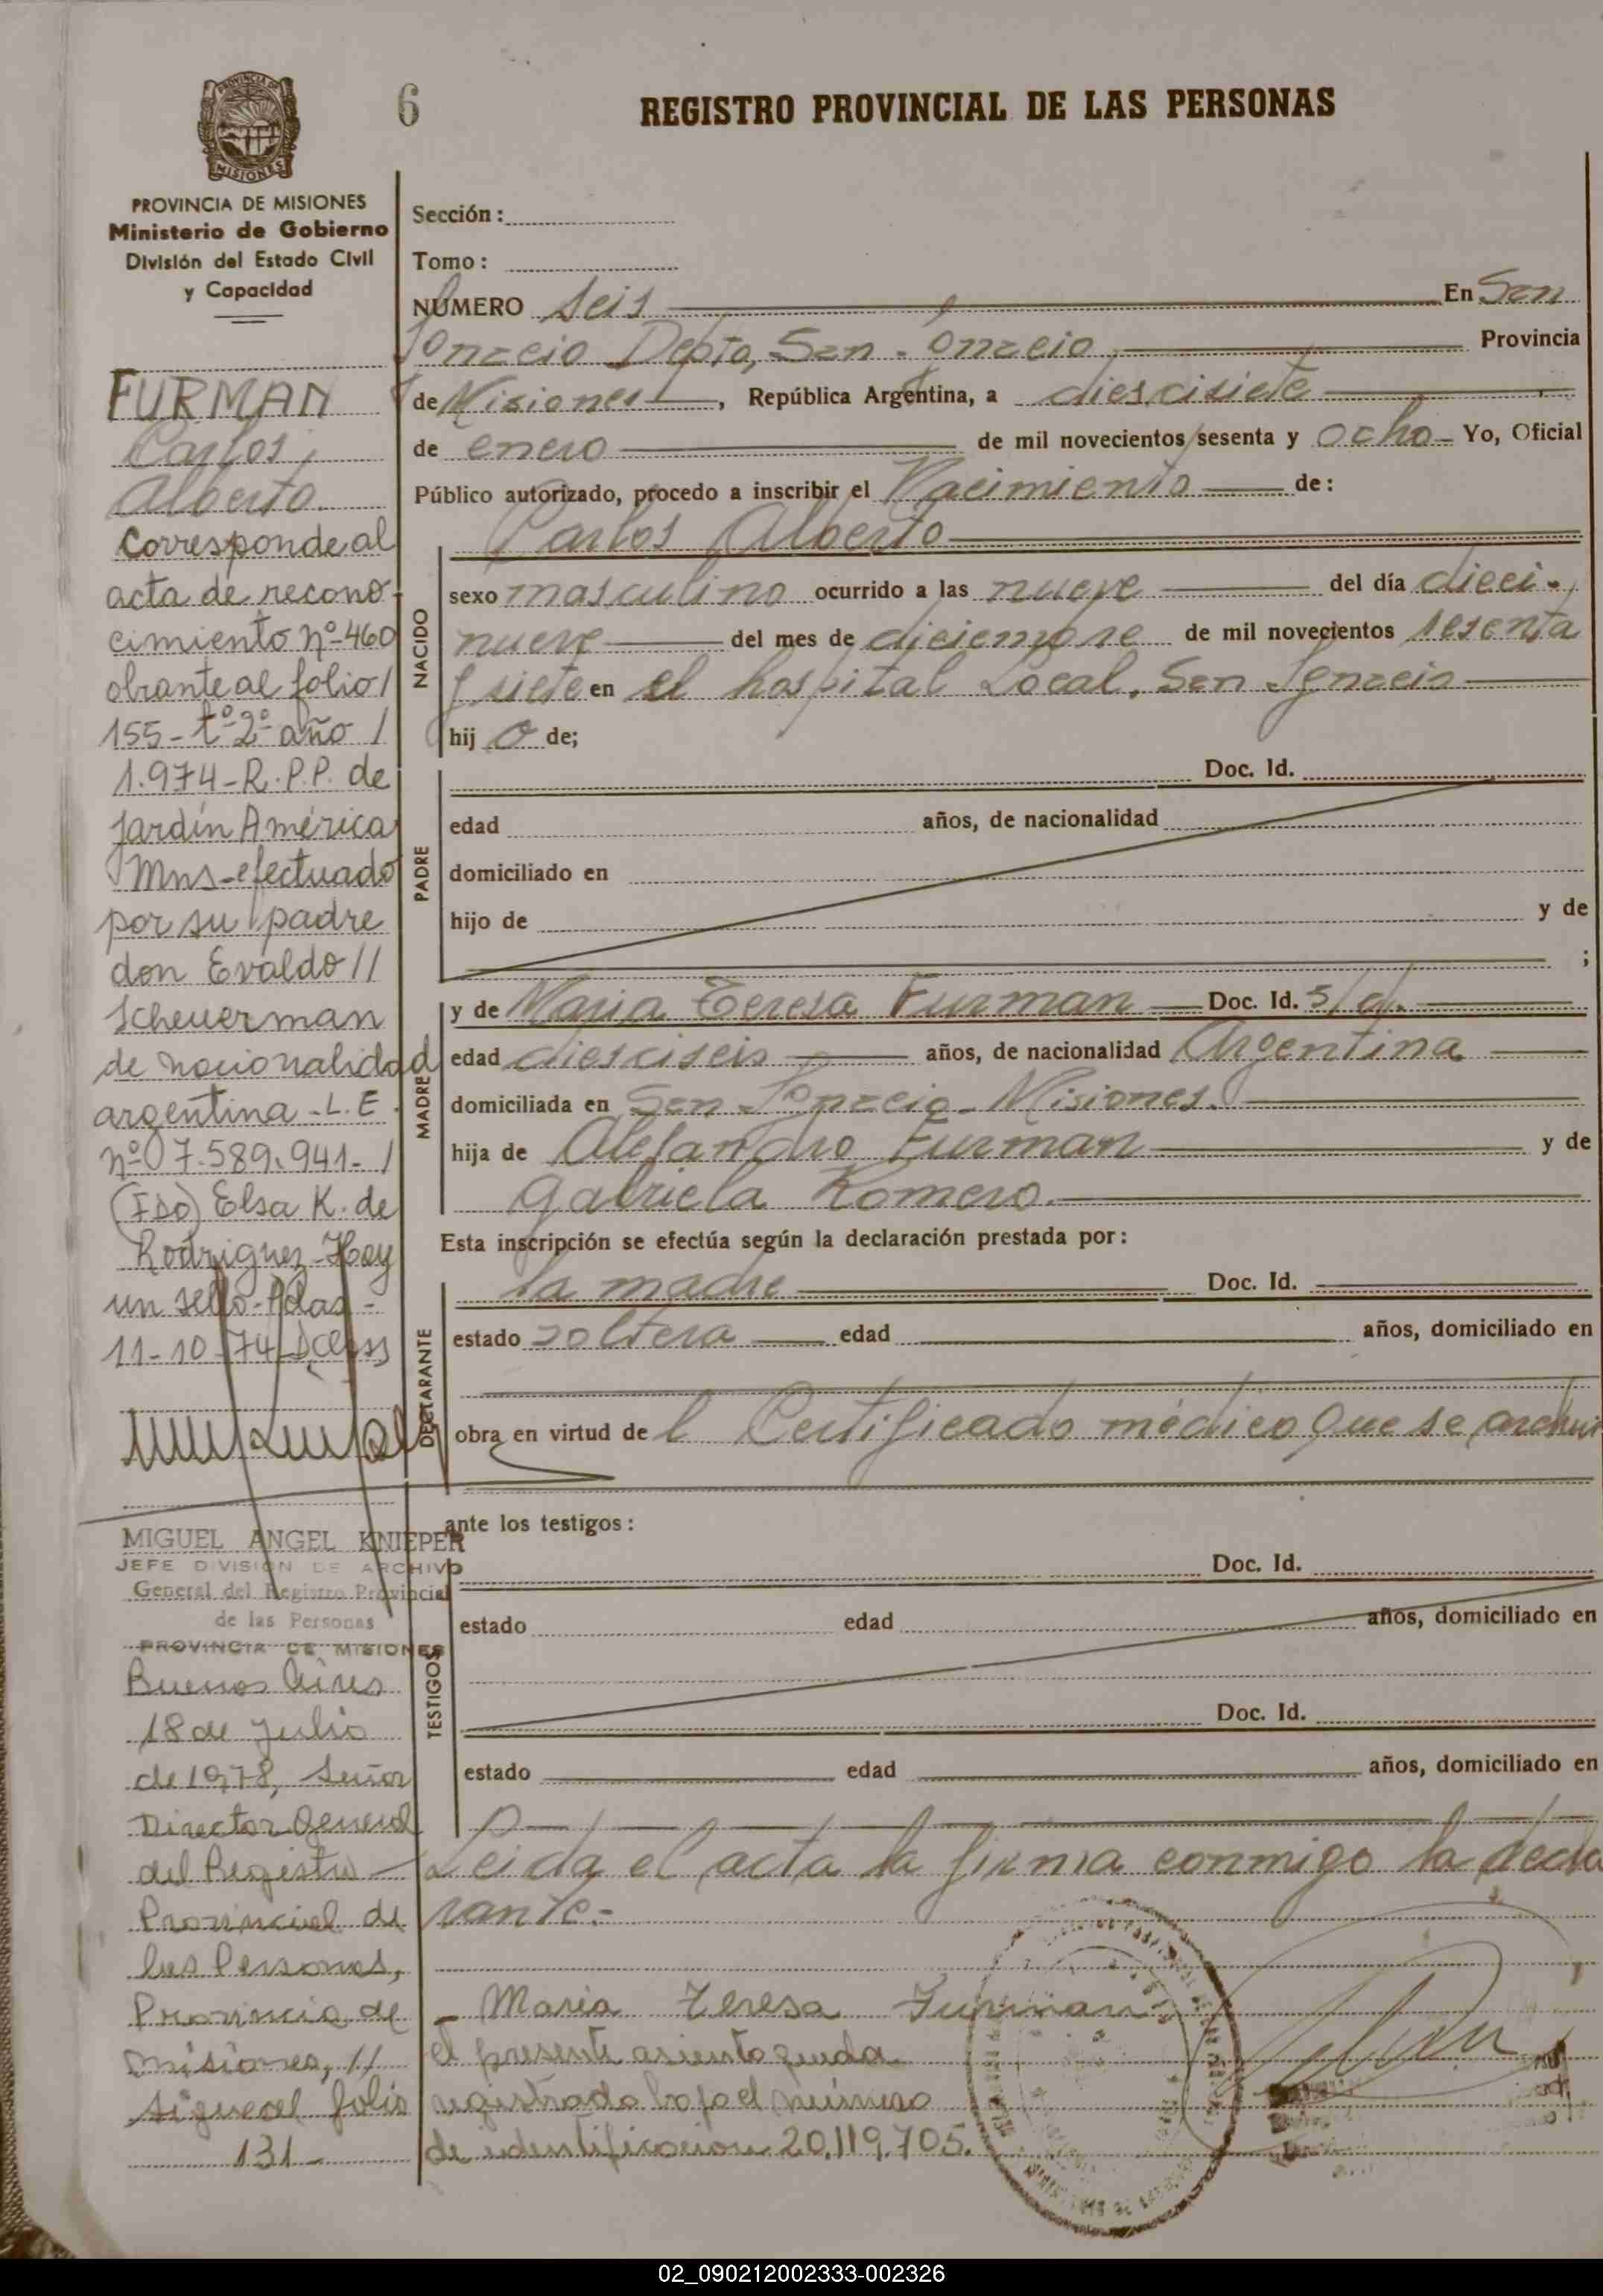 6
REGISTRO PROVINCIAL DE LAS PERSONAS
PROVINCIA DE MISIONES
MISIONES
PROVINCIA DE MISIONES
Ministerio de Gobierno
División del Estado Civil
y Capacidad
FURMAN
Carlos
Alberto
Corresponde al
acta de recono-
cimiento nº 460
obrante al folio /
155 - tº 2º año /
1.974 - R. P.P. de
Jardín América
Mns - efectuado
por su padre
don Evaldo //
Scheuerman
de nacionalidad
argentina - L. E.
nº 7.589.941 - /
(Fdo) Elsa K. de
Rodriguez - Hay
un sello - Pdas -
11 - 10 - 74
MIGUEL ANGEL KNIEPER
JEFE DIVISION DE ARCHIVO
General del Registro Provincial
de las Personas
PROVINCIA DE MISIONES
Buenos Aires
18 de Julio
de 1978, Señor
Director General
del Registro
Provincial de
las Personas,
Provincia de
Misiones, //
sigue al folio
131 -
Sección:
Tomo:
NÚMERO seis En San
Ignacio Depto, San Ignacio Provincia
de Misiones, República Argentina, a diescisiete
de enero de mil novecientos sesenta y ocho - Yo, Oficial
Público autorizado, procedo a inscribir el Nacimiento de:
Carlos Alberto
NACIDO
sexo masculino ocurrido a las nueve del día dieci-
nueve del mes de diciembre de mil novecientos sesenta
y siete en el hospital Local, San Ignacio
hij o de;
PADRE
Doc. Id.
edad años, de nacionalidad
domiciliado en
hijo de y de
;
MADRE
y de Maria Teresa Furman Doc. Id. s/d.
edad diesciseis años, de nacionalidad Argentina
domiciliada en San Ignacio - Misiones.
hija de Alejandro Furman y de
Gabriela Romero.
Esta inscripción se efectúa según la declaración prestada por:
DECLARANTE
la madre Doc. Id.
estado soltera edad años, domiciliado en
obra en virtud de l Certificado médico que se archiv
TESTIGOS
ante los testigos:
Doc. Id.
estado edad años, domiciliado en
Doc. Id.
estado edad años, domiciliado en
Leida el acta la firma conmigo la decla
rante.-
Maria Teresa Furman
el presente asiento queda
registrado bajo el número
de identificacion 20.119.705.
02_090212002333-002326